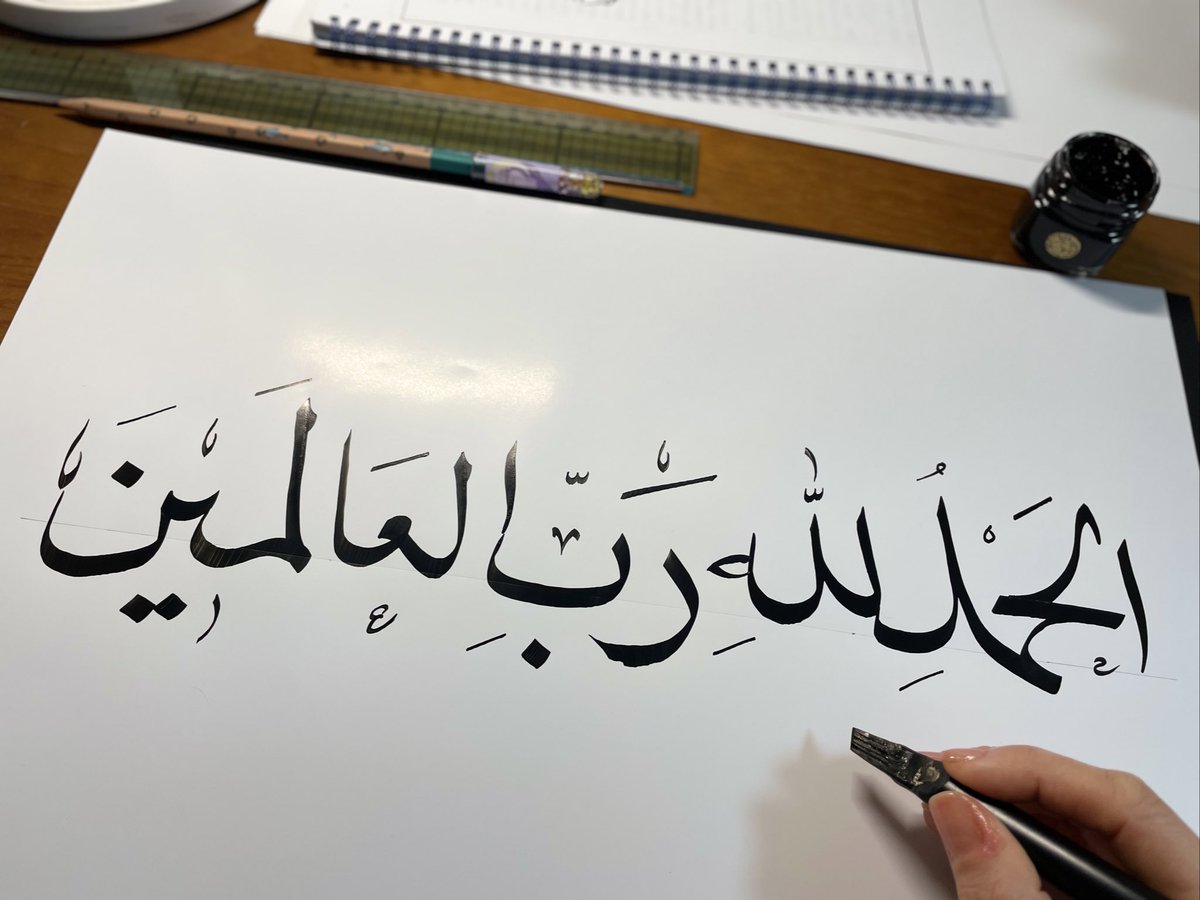 الحَمْدُ لِلّٰهِ رَبِّ العَالَمِينَ